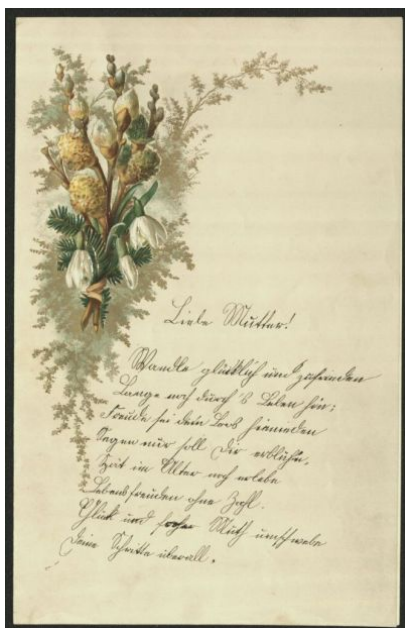 Liebe Mutter!
Wandle glücklich und zufrieden
Lange noch durch's Leben hin;
Freude sei dein Loos hienieden
Segen nur soll Dir erblühn.
Spät im Alter noch erlebe
Lebensfreuden ohne Zahl.
Glück und froher Muth umschwebe
Deine Schritte überall.